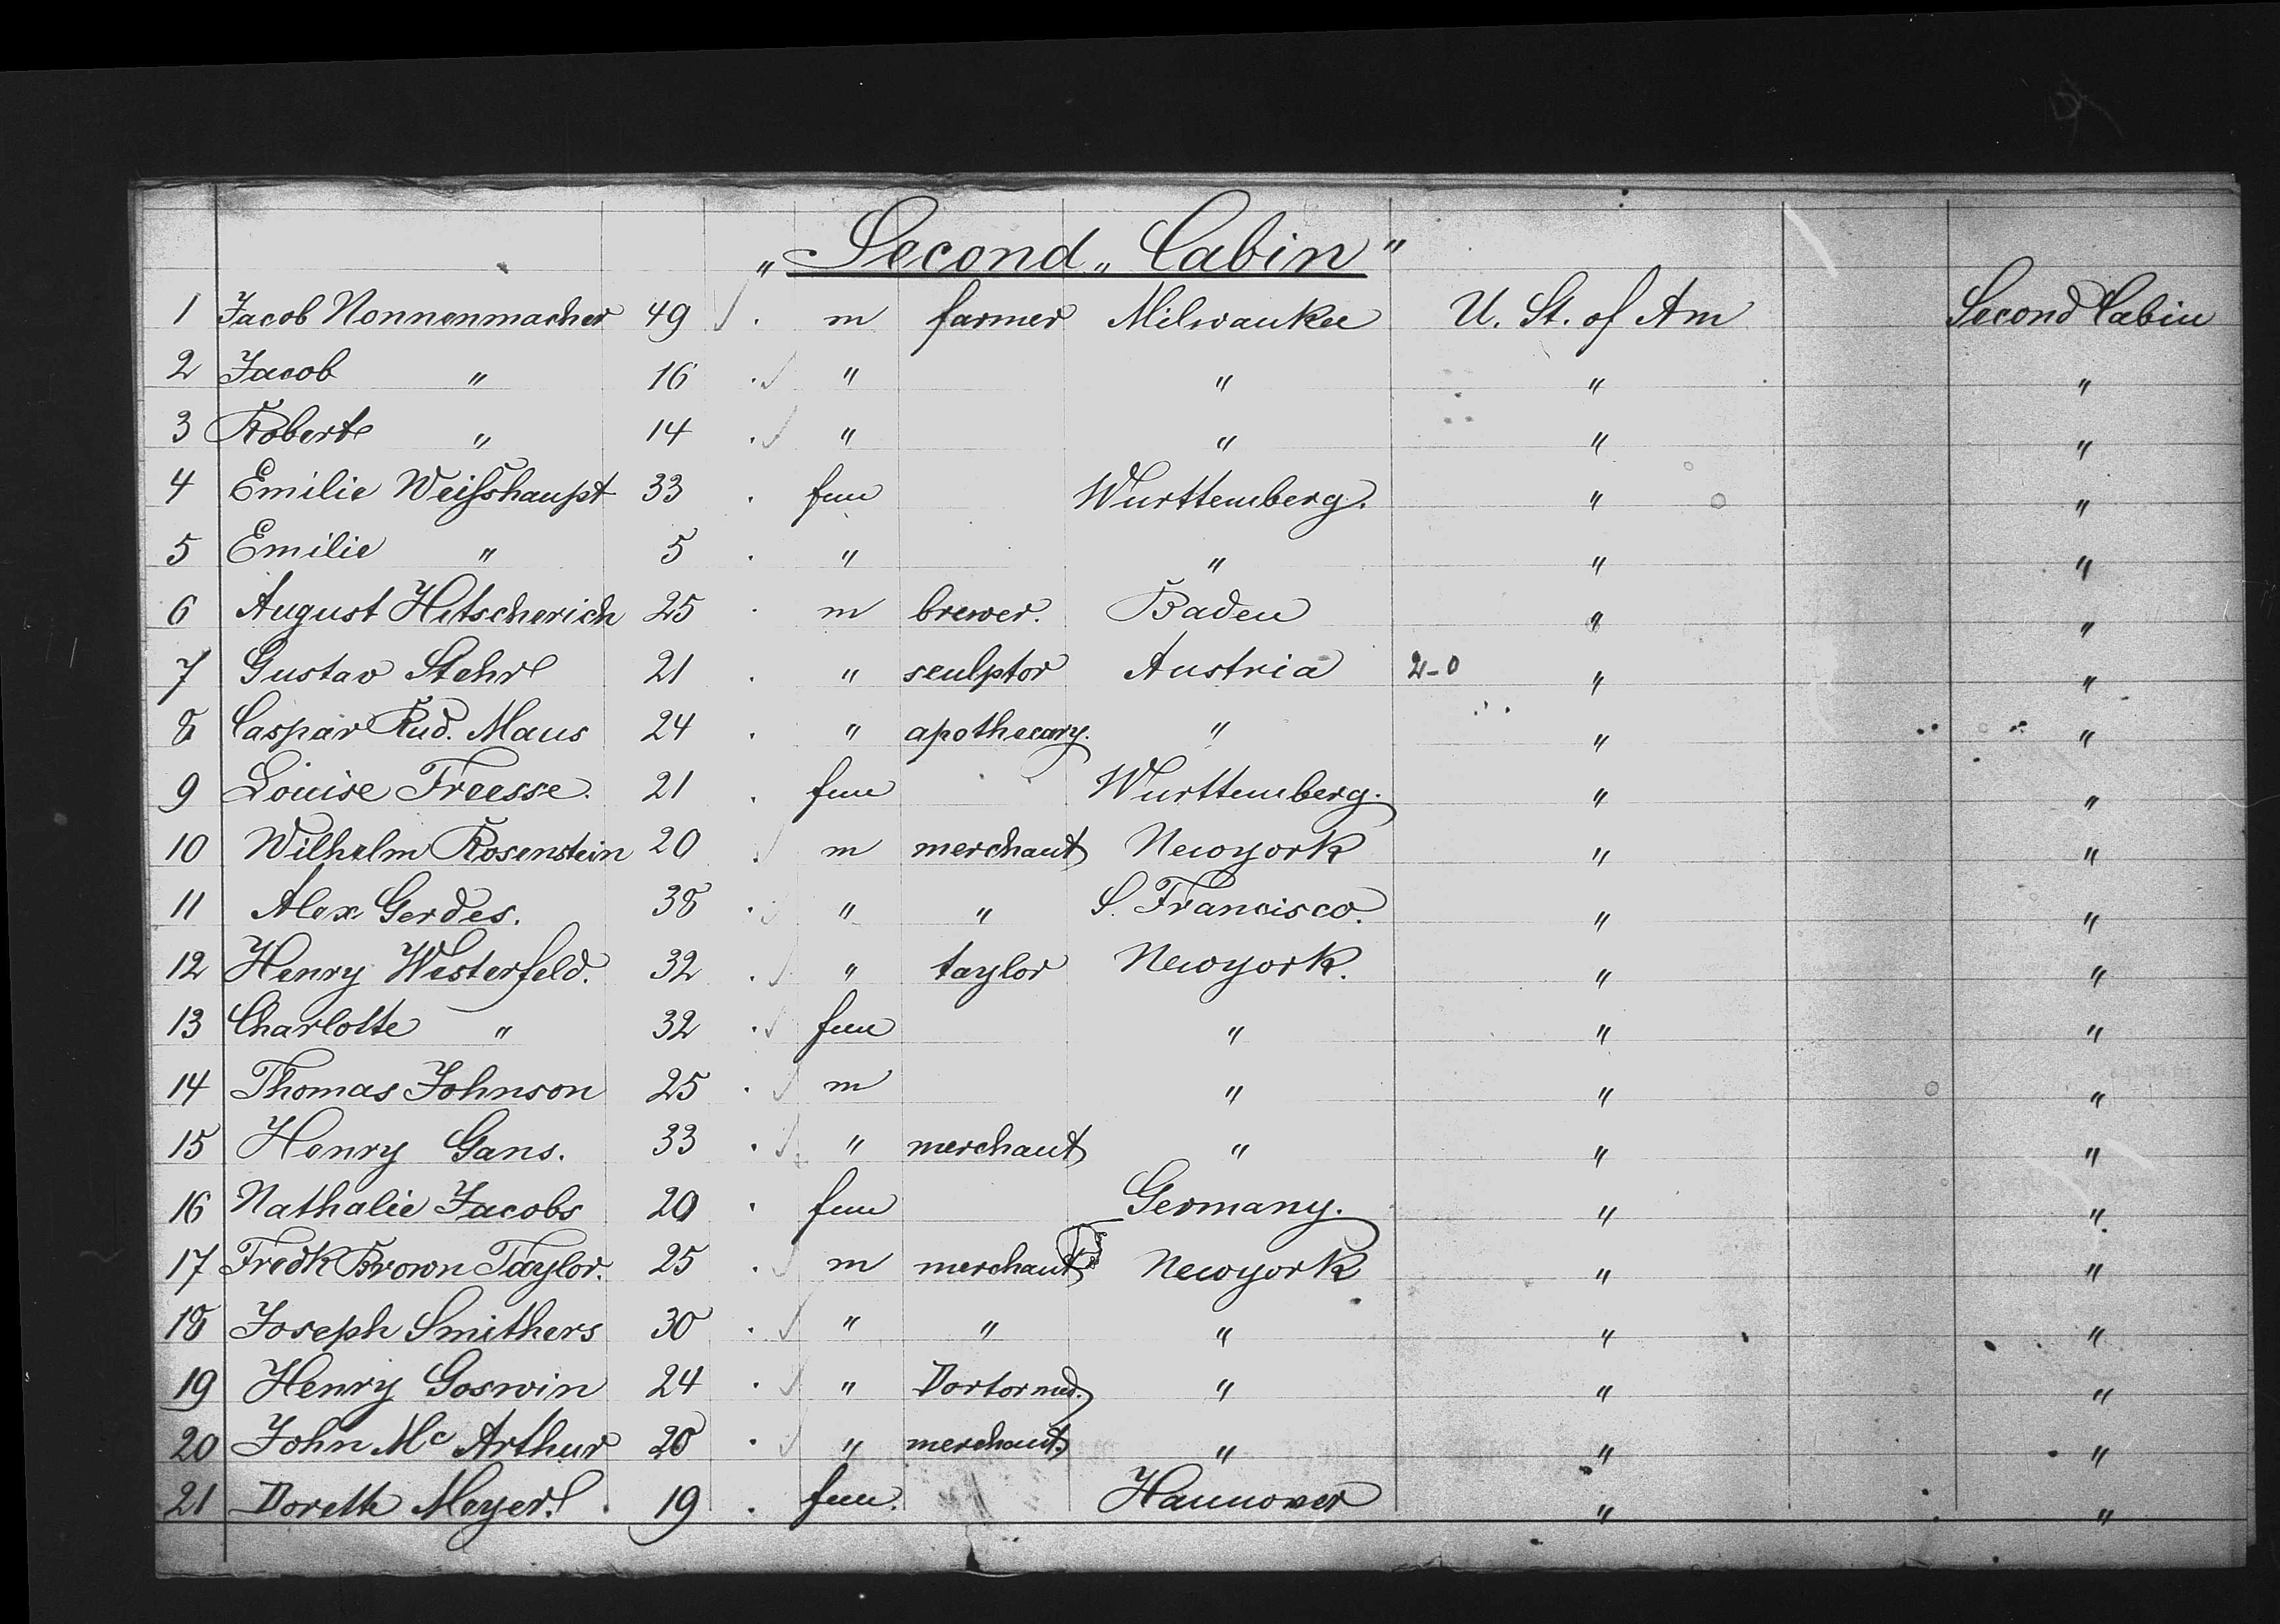 „Second „ Cabin"
1 Jacob Nonnenmacher 49 . m farmer Milwaukee U. St. of Am Second Cabin
2 Jacob " 16 . " " " "
3 Robert " 14 . " " " "
4 Emilie Weißhaupt 33 . fem Wurttemberg. " "
5 Emilie " 5 . " " " "
6 August Hitscherich 25 . m brewer. Baden " "
7 Gustav Stehr 21 . " sculptor Austria 2-0 " "
8 Caspar Rud. Maus 24 . " apothecary. " " "
9 Louise Freesse. 21 . fem Wurttemberg. " "
10 Wilhelm Rosenstein 20 . m merchant Newyork " "
11 Alex Gerdes. 38 . " " S. Francisco. " "
12 Henry Westerfeld. 32 . " taylor Newyork. " "
13 Charlotte " 32 . fem " " "
14 Thomas Johnson 25 . m " " "
15 Henry Gans. 33 . " merchant " " "
16 Nathalie Jacobs 20 . fem Germany. " "
17 Fredk Brown Taylor. 25 . m merchant Newyork " "
18 Joseph Smithers 30 . " " " " "
19 Henry Goswin 24 . " Doctor med. " " "
20 John Mc Arthur 28 . " merchant. " " "
21 Dorette Meyer. 19 . fem. Hannover " "